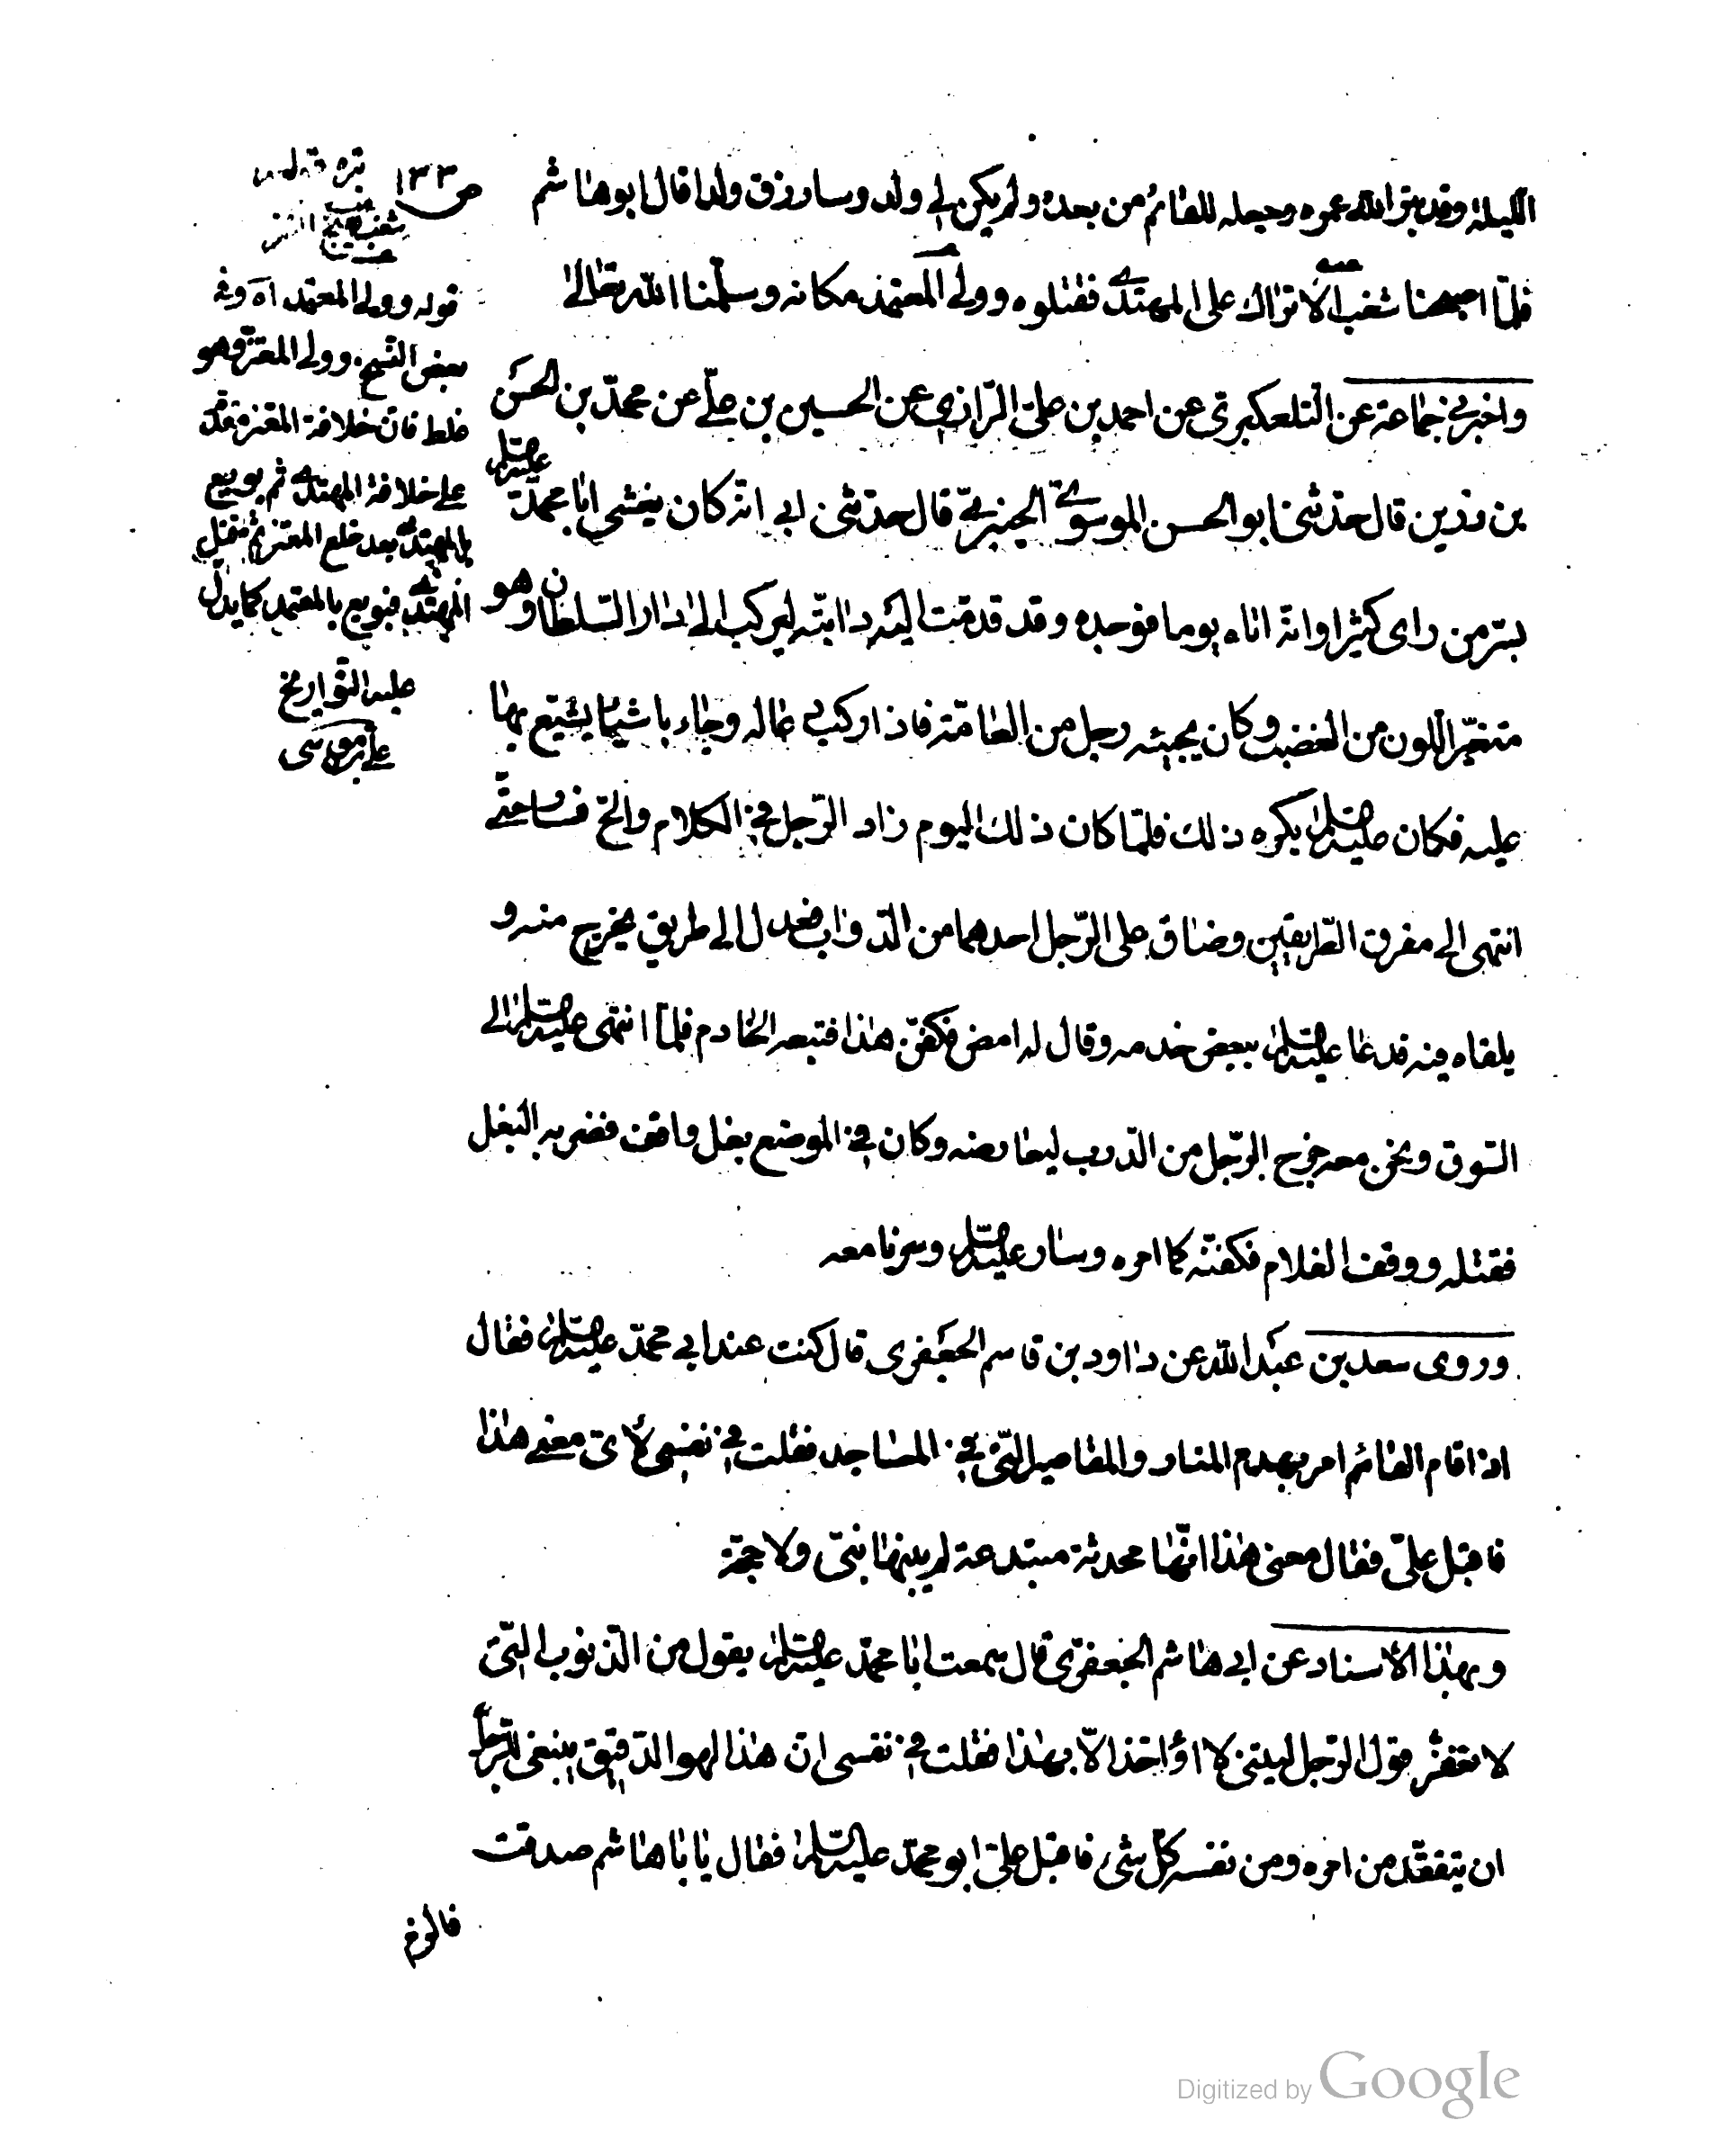 الليلة وقد بتر الله عمره وجعله للقائم من بعده ولم يكن لي ولد وسارزق ولدا قال ابو هاشم
فلما اصبحنا شغب الاتراك على المهتدي فقتلوه وولي المعتمد مكانه وسلمنا الله تعالى
واخبرني جماعة عن التلعكبري عن احمد بن علي الرازي عن الحسين بن علي عن محمد بن الحسن
بن رزين قال حدثني ابو الحسن الموسوي الخيبري قال حدثني ابي انه كان يغشى ابا محمد عليه السلام
بسر من راى كثيرا وانه اتاه يوما فوجده وقد قدمت اليه دابته ليركب الى دار السلطان وهو
متغير اللون من الغضب وكان يجيئه رجل من العامة فاذا ركب دعا له وجاء باشياء يشنع بها
عليه فكان عليه السلام يكره ذلك فلما كان ذلك اليوم زاد الرجل في الكلام والح فسار حتى
انتهى الى مفرق الطريقين وضاق على الرجل احدهما من الدواب فعدل الى طريق يخرج منه و
يلقاه فيه فدعا عليه السلام ببعض خدمه وقال له امض فكفن هذا فتبعه الخادم فلما انتهى عليه السلام الى
السوق ونحن معه خرج الرجل من الدرب ليعارضه وكان في الموضع بغل واقف فضربه البغل
فقتله ووقف الغلام فكفنه كما امره وسار عليه السلام وسرنا معه
وروى سعد بن عبد الله عن داود بن قاسم الجعفري قال كنت عند ابي محمد عليه السلام فقال
اذا قام القائم امر بهدم المنار والمقاصير التي في المساجد فقلت في نفسي لاي معنى هذا
فاقبل علي فقال معنى هذا انها محدثة مبتدعة لم يبنها نبي ولا حجة
وبهذا الاسناد عن ابي هاشم الجعفري قال سمعت ابا محمد عليه السلام يقول من الذنوب التي
لا تغفر قول الرجل ليتني لا اؤاخذ الا بهذا فقلت في نفسي ان هذا لهو الدقيق ينبغي للرجل
ان يتفقد من امره ومن نفسه كل شيء فاقبل علي ابو محمد عليه السلام فقال يا ابا هاشم صدقت
فالزم
ص ١٣٣
قوله وولي المعتمد اه وفي
بعض النسخ وولي المعتز وهو
غلط فان خلافة المعتز مقدم
على خلافة المهتدي ثم بويع
بالمهتدي بعد خلع المعتز ثم قتل
المهتدي فبويع بالمعتمد كما يدل
عليه التواريخ
علي بن موسى
Digitized by Google